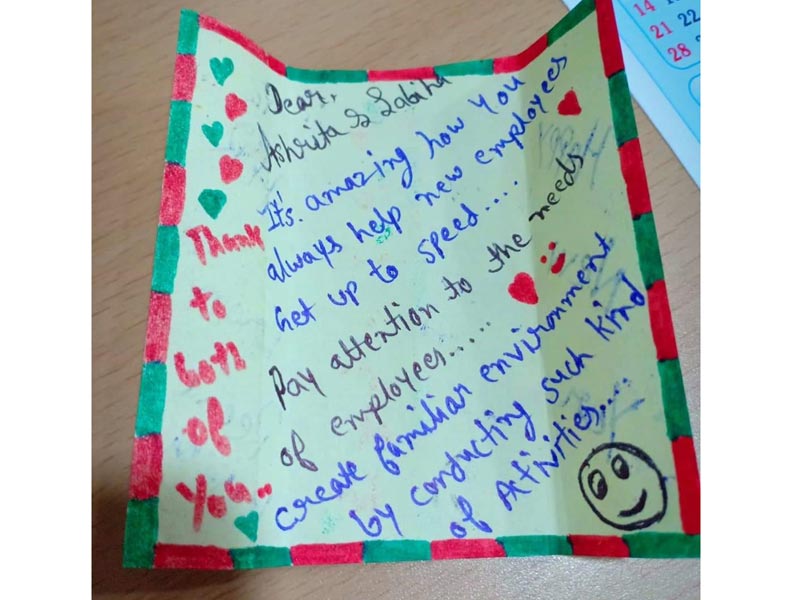 Dear,
Ashrita & Labiha
It's. amazing how You
always help new employees
Get up to speed....
Pay attention to the needs
of employees.....
create familiar environment
by conducting such kind
of Activities....
Thank
to
both
of
You..
14
21 22
28